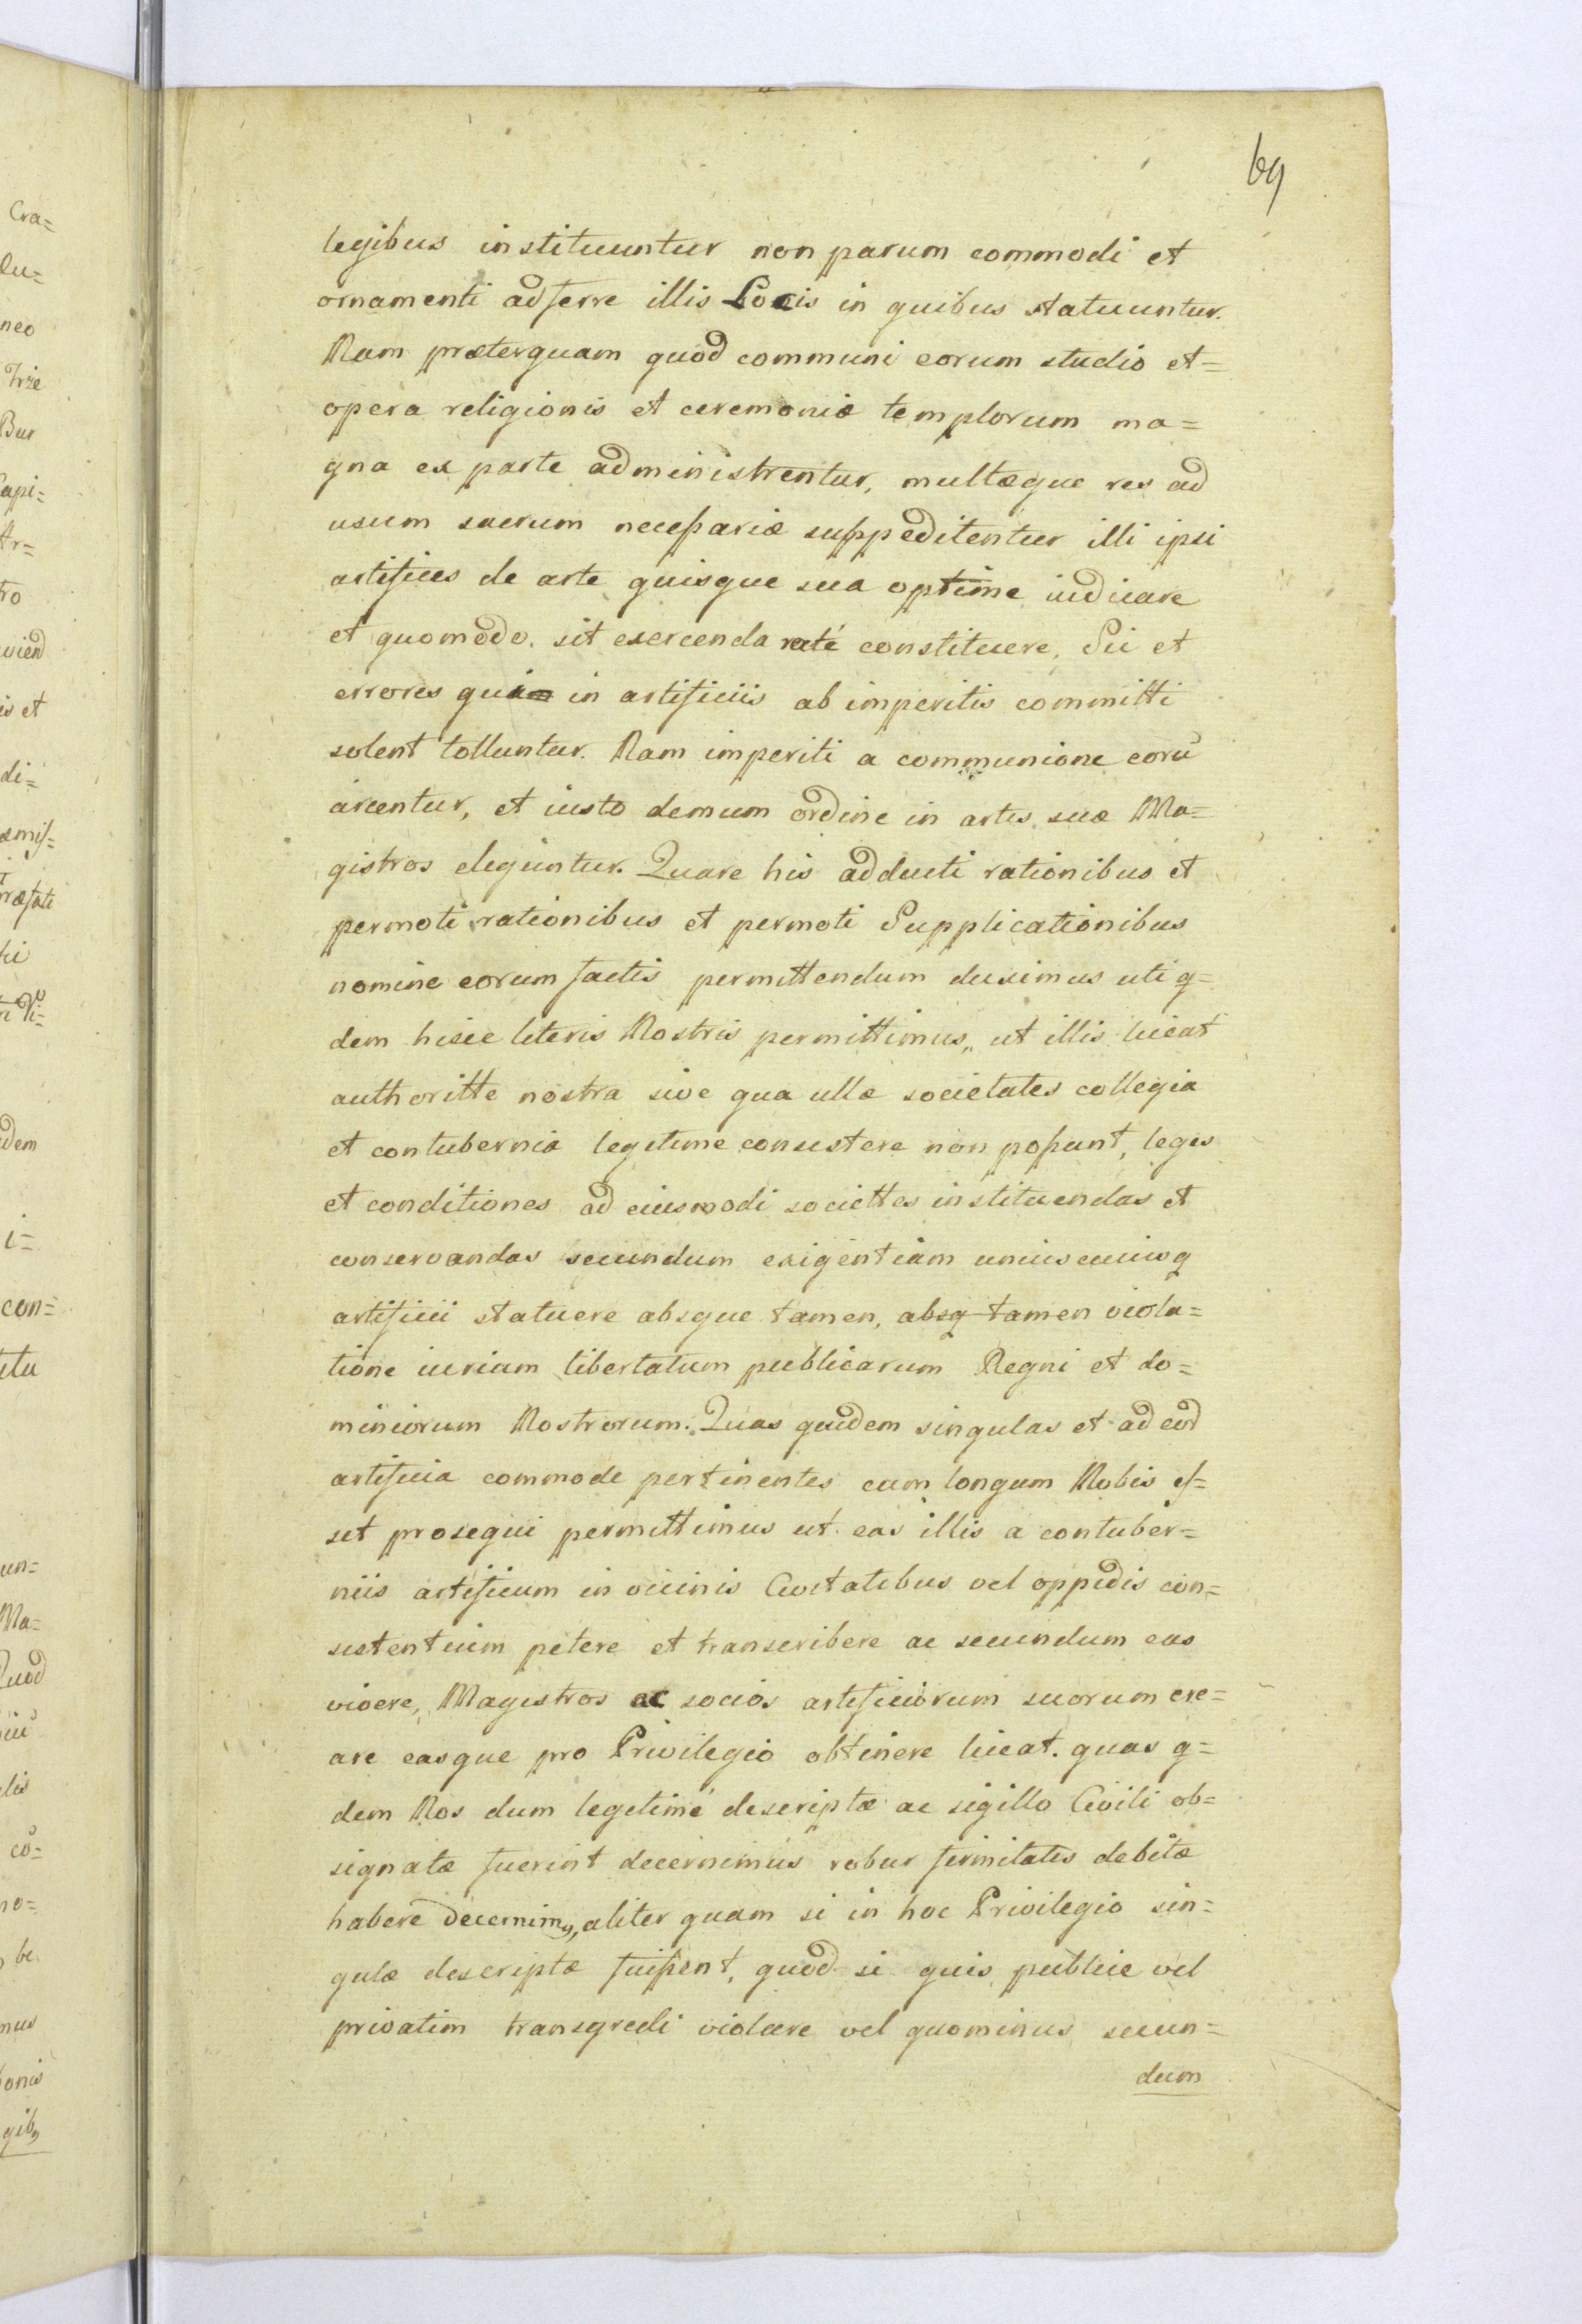 69
legibus instituuntur non parum commodi et
ornamenti adferre illis Locis in quibus statuuntur.
Nam præterquam quod communi eorum studio et=
opera religionis et ceremoniæ templorum ma=
gna ex parte administrentur, multæque res ad
usum sacrum necessariæ suppeditentur illi ipsi
artifices de arte quisque sua optime iudicare
et quomodo. sit exercenda raté constituere, Sii et
errores qui in artificiis ab imperitis committi
solent tolluntur. Nam imperiti a communione eorũ
arcentur, et iusto demum ordine in artis suæ Ma=
gistros eleguntur. Quare his adducti rationibus et
permoti rationibus et permoti Supplicationibus
nomine eorum factis permittendum duximus uti q=
dem hisce literis Nostris permittimus, ut illis liceat
authoritte nostra sive qua ullæ societates collegia
et contubernia legitime consistere non possunt, leges
et conditiones ad eiusmodi societtes instituendas et
conservandas secundum exigentiam uniuscuiusq
artificii statuere absque tamen, absq tamen viola=
tione iurium libertatum publicarum Regni et do=
miniorum Nostrorum. Quas quidem singulas et ad eod
artificia commode pertinentes cum longum Nobis es=
set prosequi permittimus ut eas illis a contuber=
niis artificum in vicinis Civitatibus vel oppidis con=
sistentium petere et transcribere ac secundum eas
vivere, Magistros ac socios artificiorum suorum cre=
are easque pro Privilegio obtinere liceat. quas q=
dem Nos dum legetimé descriptæ ac sigillo Civili ob=
signatæ fuerint decernimus robur firmitatis debitæ
habere decernimꝰ, aliter quam si in hoc Privilegio sin=
gulæ descriptæ fuissent, quod si quis publice vel
privatim transgredi violare vel quominus secun=
dum